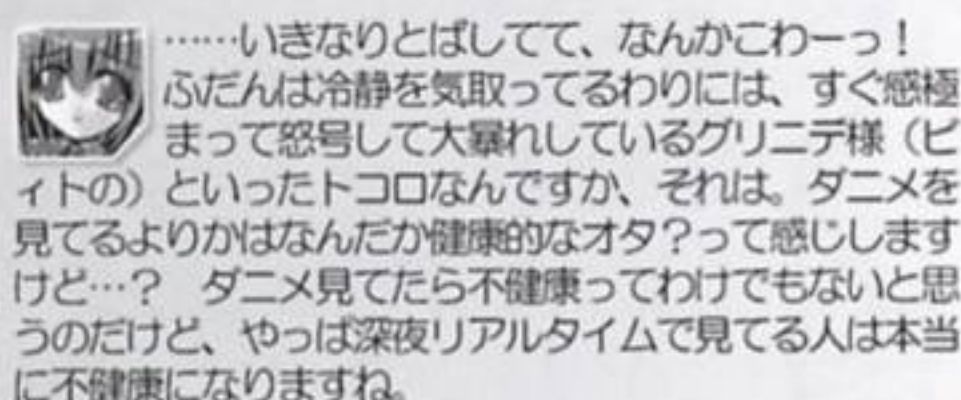 ……いきなりとばしてて、なんかこわーっ！
ふだんは冷静を気取ってるわりには、すぐ感極
まって怒号して大暴れしているグリニデ様（ビ
ィトの）といったトコロなんですか、それは。ダニメを
見てるよりかはなんだか健康的なオタ？って感じします
けど…？　ダニメ見てたら不健康ってわけでもないと思
うのだけど、やっぱ深夜リアルタイムで見てる人は本当
に不健康になりますね。